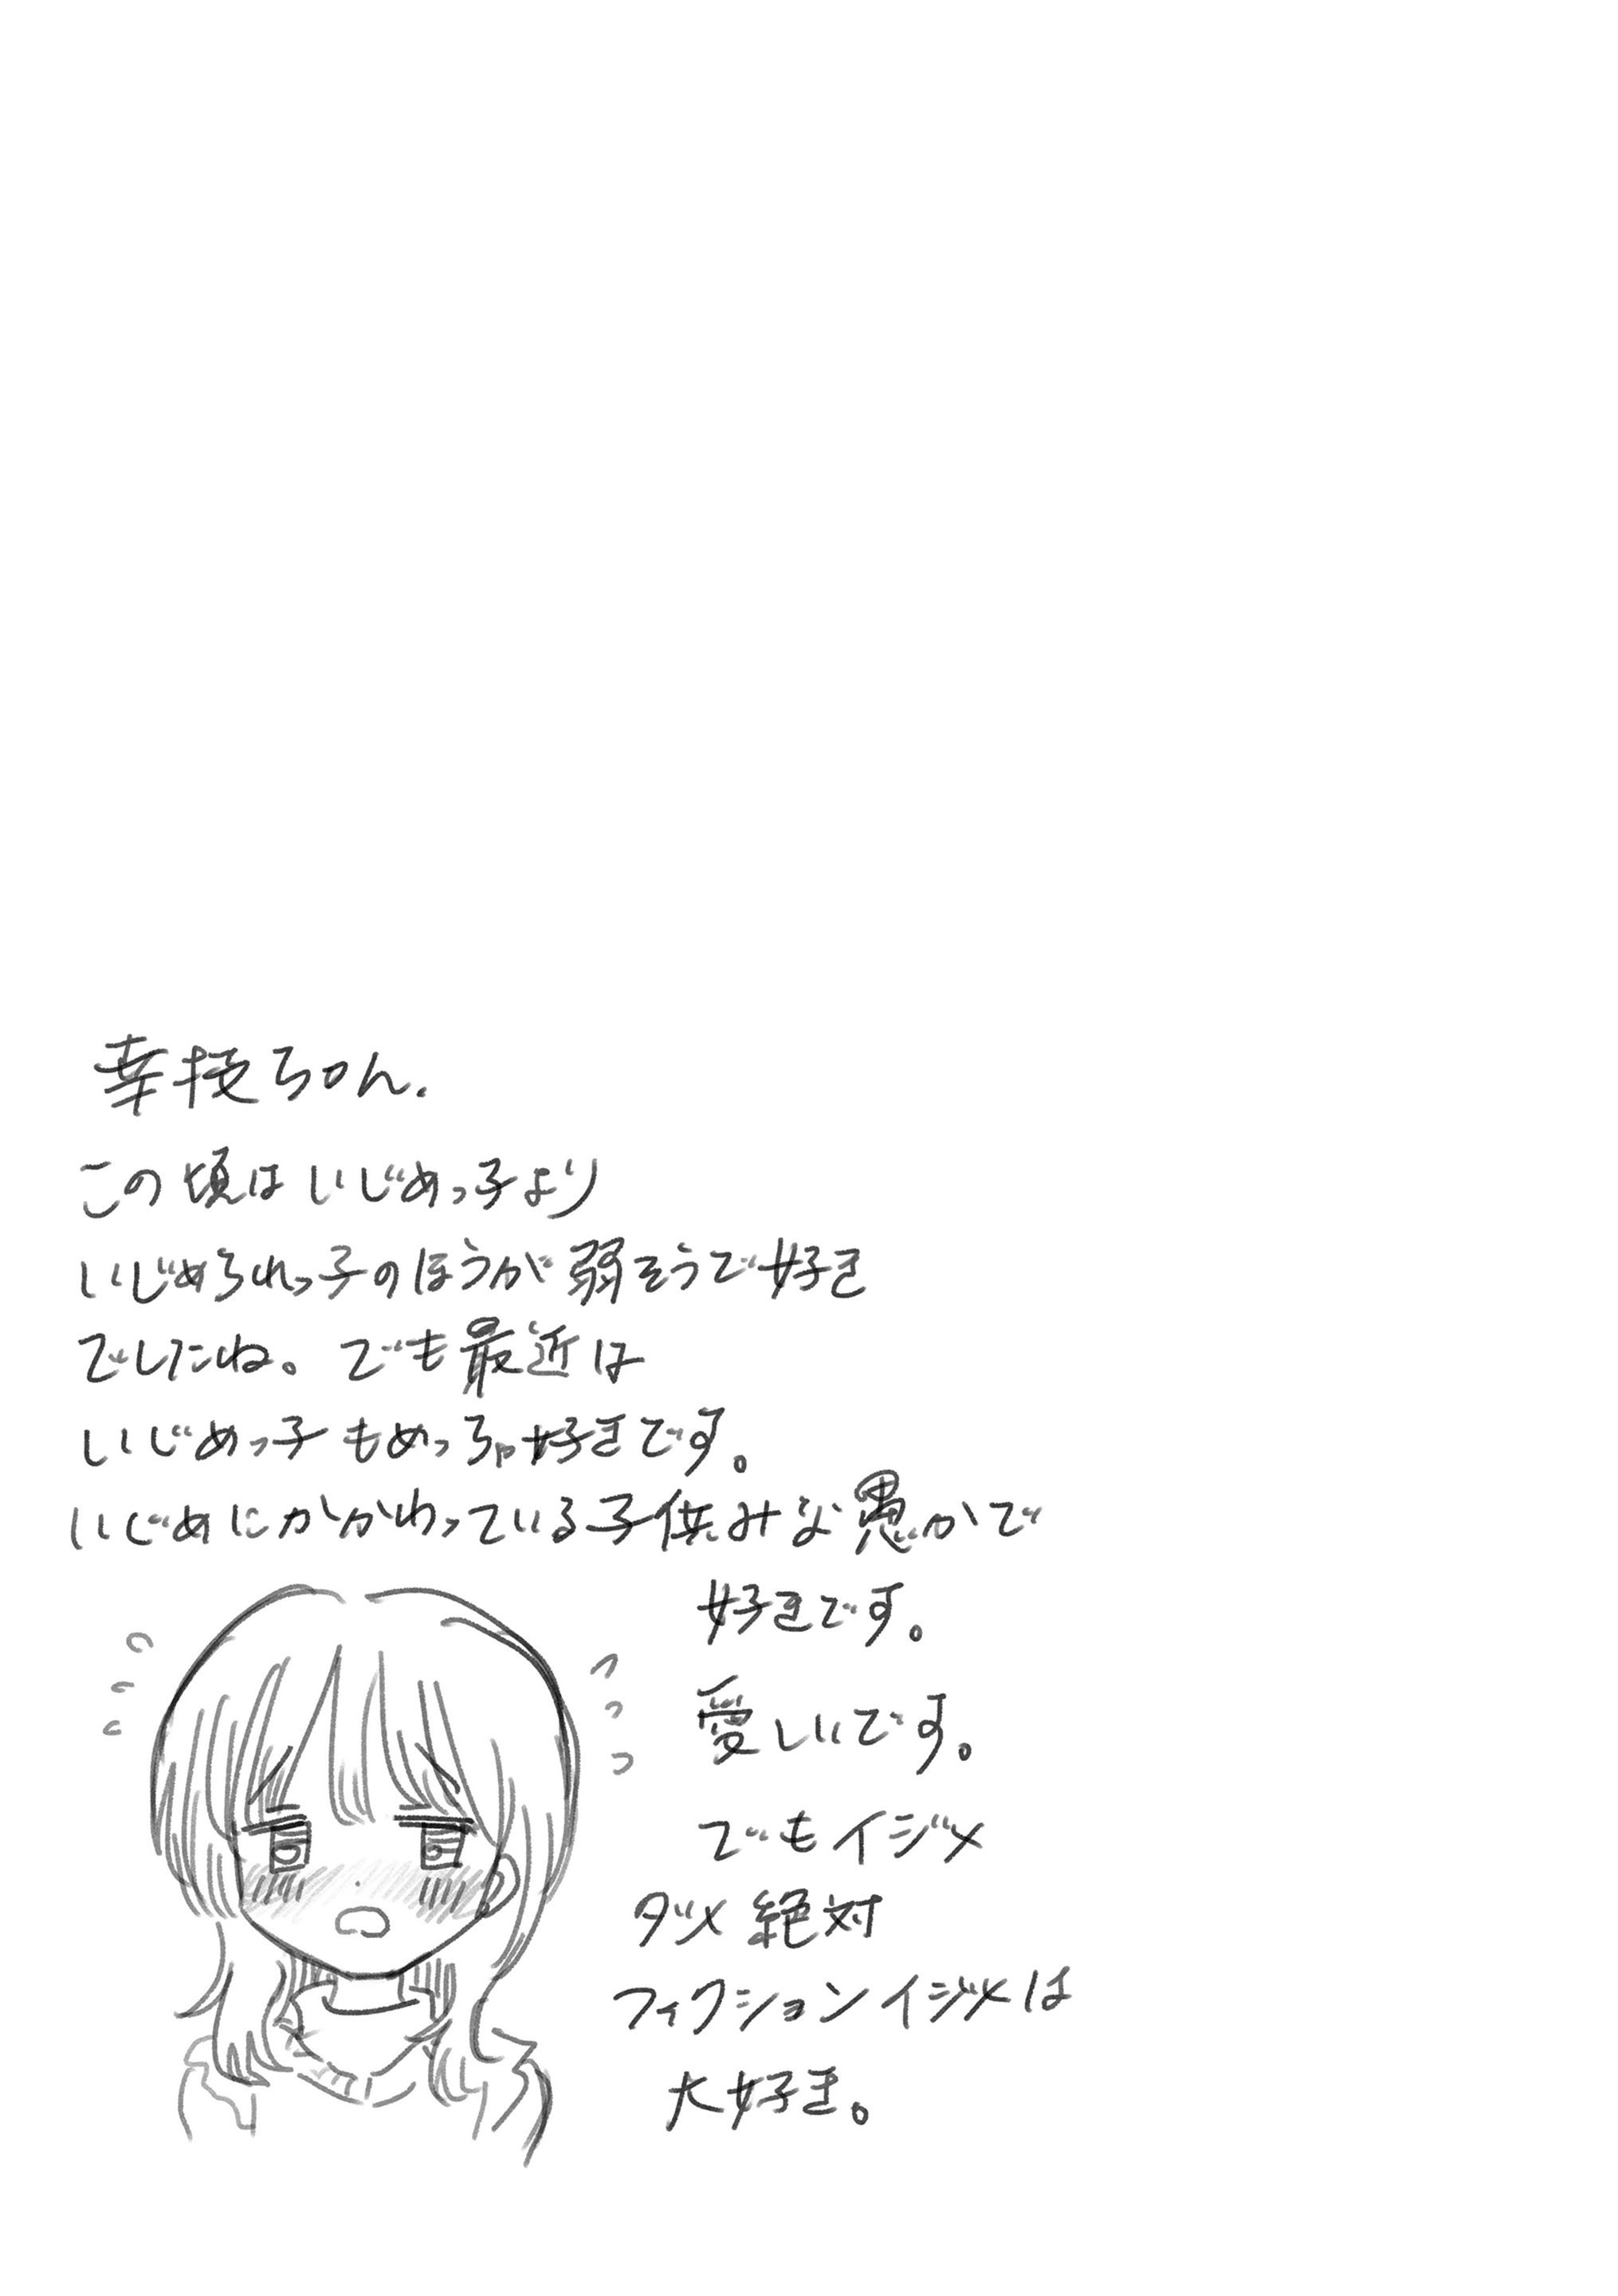 幸枝ちゃん.
この頃はいじめっ子より
いじめられっ子のほうが弱そうで好き
でしたね。でも最近は
いじめっ子もめっちゃ好きです。
いじめにかかわっている子供みな愚かで
好きです。
愛しいです。
でもイジメ
ダメ絶対
フィクションイジメは
大好き。